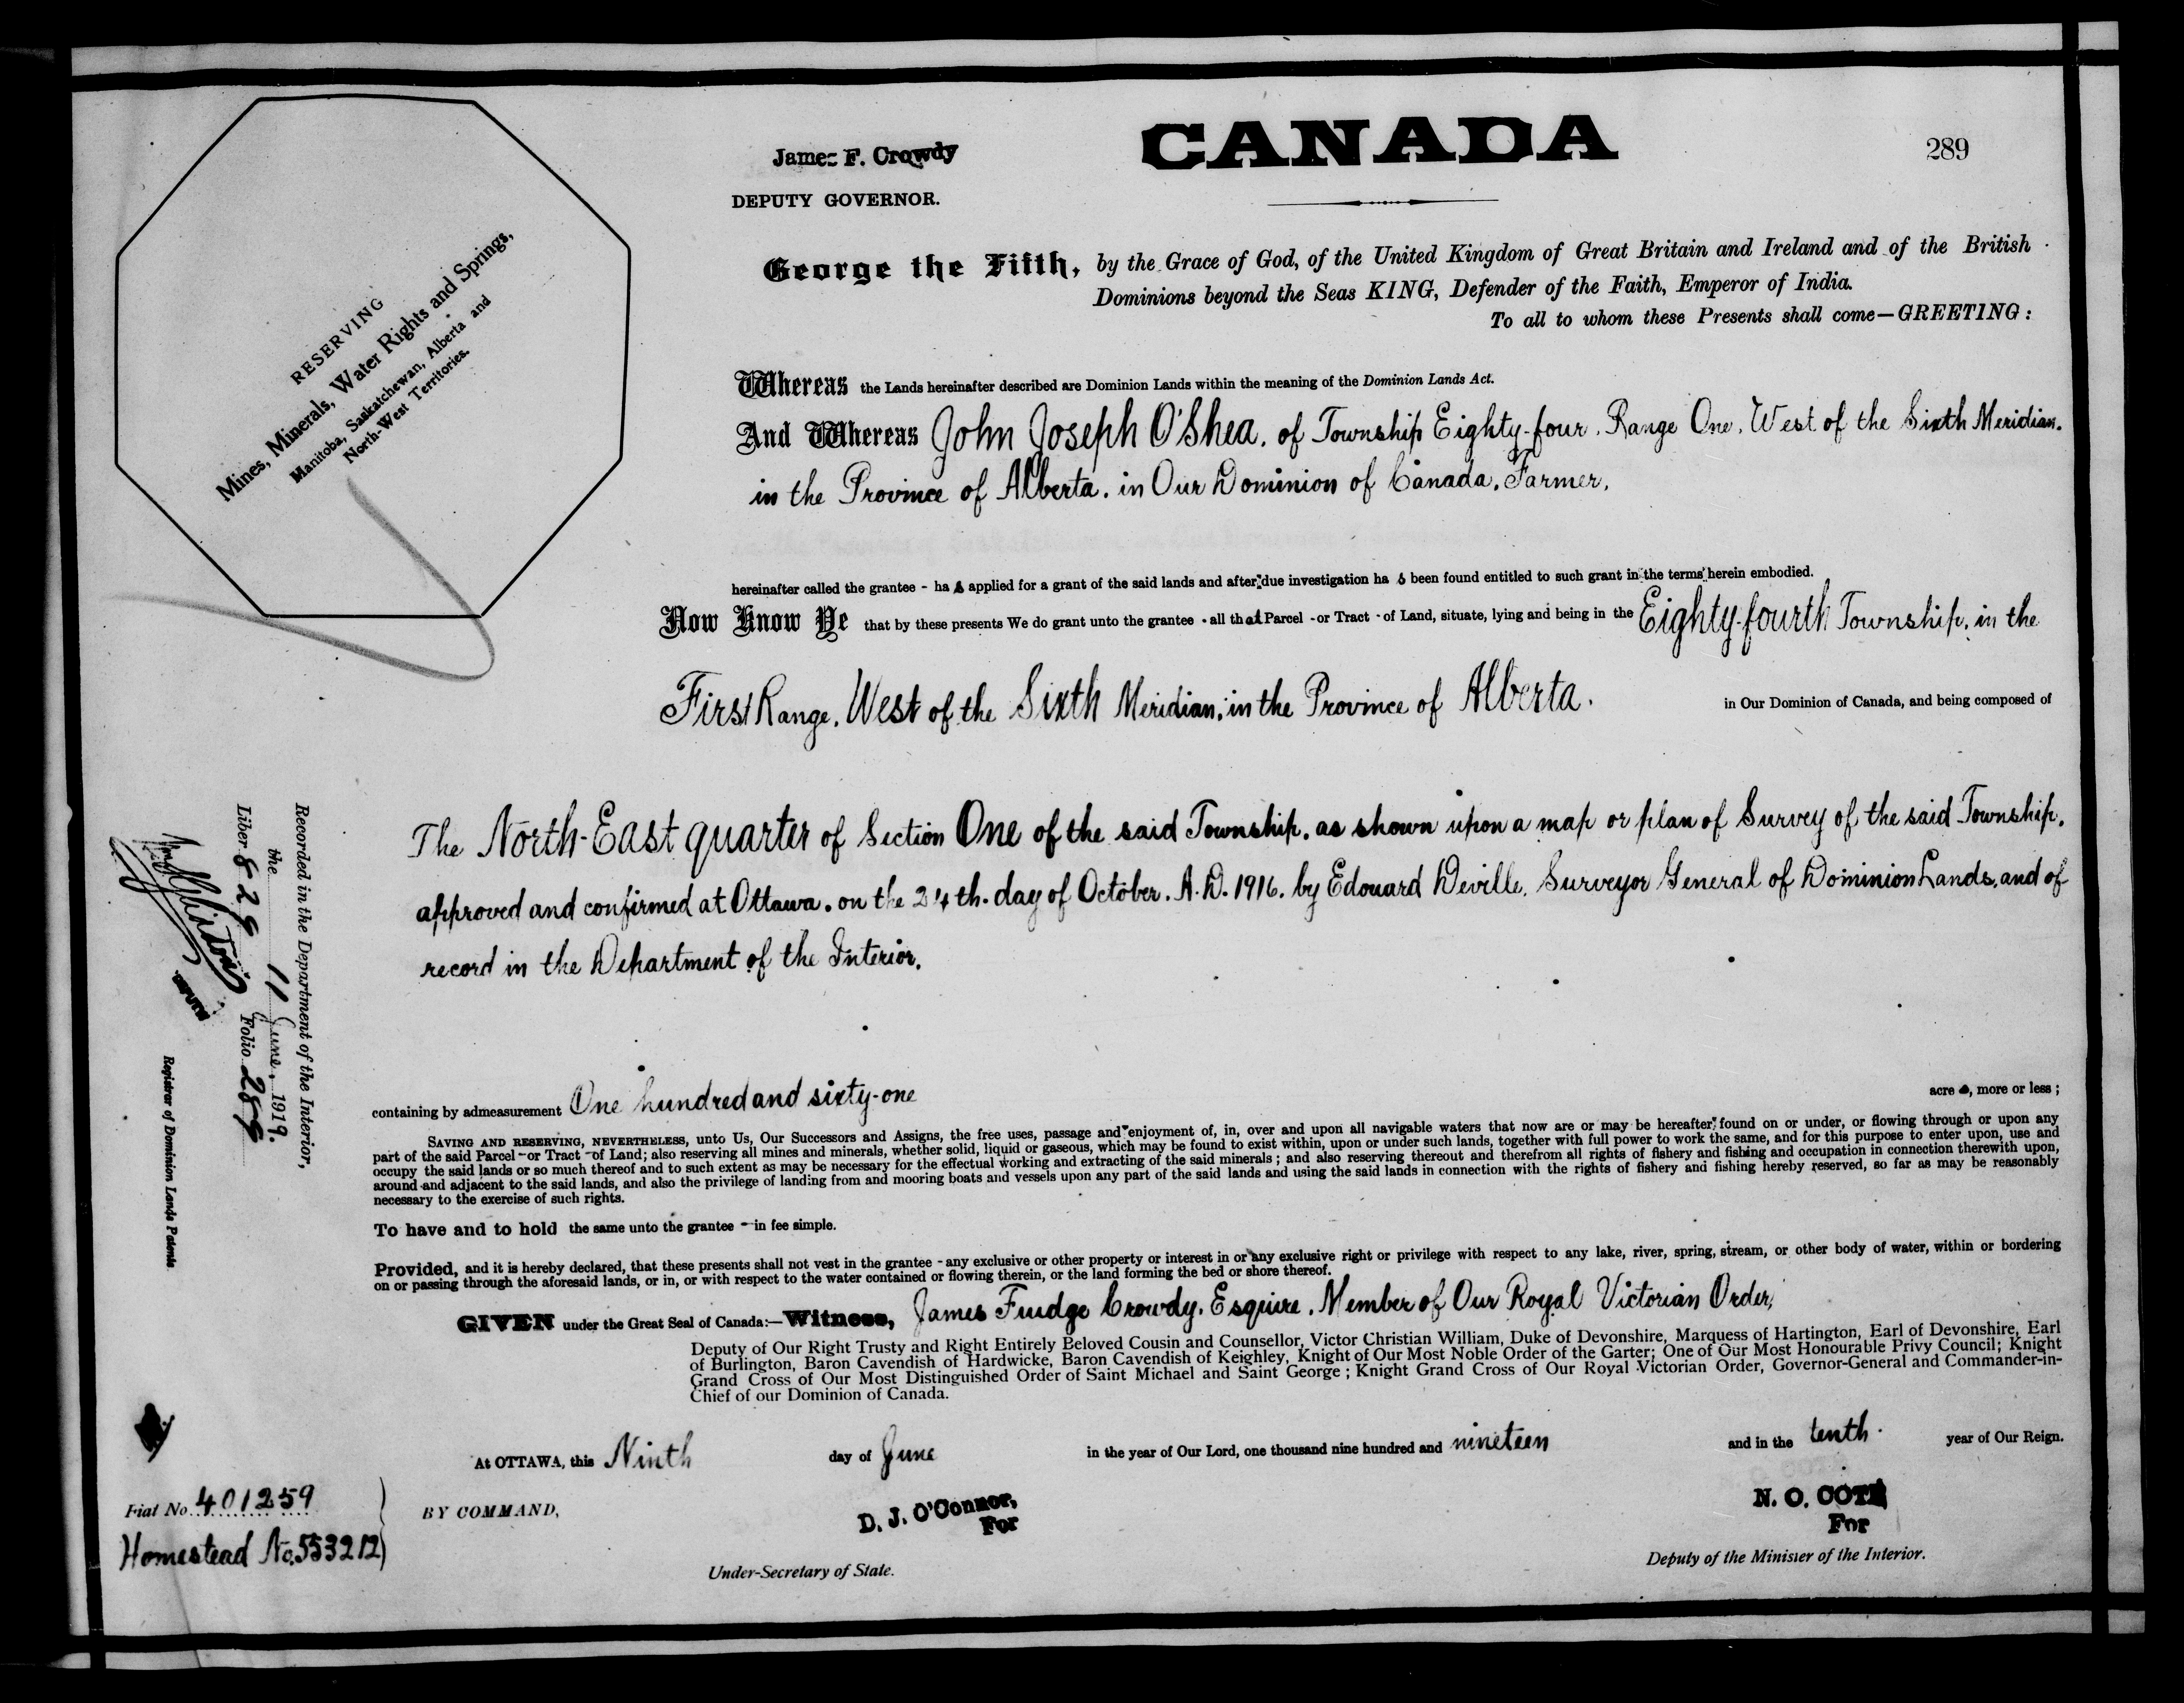 CANADA
289
James F. Crowdy
DEPUTY GOVERNOR.
RESERVING
Mines, Minerals, Water Rights and Springs,
Manitoba, Saskatchewan, Alberta and
North-West Territories.
George the Fifth, by the Grace of God, of the United Kingdom of Great Britain and Ireland and of the British
Dominions beyond the Seas KING, Defender of the Faith, Emperor of India.
To all to whom these Presents shall come—GREETING:
Whereas the Lands hereinafter described are Dominion Lands within the meaning of the Dominion Lands Act.
And Whereas John Joseph O'Shea, of Township Eighty-four, Range One, West of the Sixth Meridian,
in the Province of Alberta, in Our Dominion of Canada, Farmer,
hereinafter called the grantee - has applied for a grant of the said lands and after due investigation has been found entitled to such grant in the terms herein embodied.
Now Know Ye that by these presents We do grant unto the grantee - all that Parcel - or Tract - of Land, situate, lying and being in the Eighty-fourth Township, in the
First Range, West of the Sixth Meridian, in the Province of Alberta, in Our Dominion of Canada, and being composed of
The North-East quarter of Section One of the said Township, as shown upon a map or plan of Survey of the said Township,
approved and confirmed at Ottawa, on the 24th. day of October, A.D. 1916, by Edouard Deville, Surveyor General of Dominion Lands, and of
record in the Department of the Interior,
containing by admeasurement One hundred and sixty-one acres, more or less;
SAVING AND RESERVING, NEVERTHELESS, unto Us, Our Successors and Assigns, the free uses, passage and enjoyment of, in, over and upon all navigable waters that now are or may be hereafter found on or under, or flowing through or upon any
part of the said Parcel - or Tract - of Land; also reserving all mines and minerals, whether solid, liquid or gaseous, which may be found to exist within, upon or under such lands, together with full power to work the same, and for this purpose to enter upon, use and
occupy the said lands or so much thereof and to such extent as may be necessary for the effectual working and extracting of the said minerals; and also reserving thereout and therefrom all rights of fishery and fishing and occupation in connection therewith upon,
around and adjacent to the said lands, and also the privilege of landing from and mooring boats and vessels upon any part of the said lands and using the said lands in connection with the rights of fishery and fishing hereby reserved, so far as may be reasonably
necessary to the exercise of such rights.
To have and to hold the same unto the grantee - in fee simple.
Provided, and it is hereby declared, that these presents shall not vest in the grantee - any exclusive or other property or interest in or any exclusive right or privilege with respect to any lake, river, spring, stream, or other body of water, within or bordering
on or passing through the aforesaid lands, or in, or with respect to the water contained or flowing therein, or the land forming the bed or shore thereof.
GIVEN under the Great Seal of Canada:—Witness, James Fudge Crowdy, Esquire, Member of Our Royal Victorian Order,
Deputy of Our Right Trusty and Right Entirely Beloved Cousin and Counsellor, Victor Christian William, Duke of Devonshire, Marquess of Hartington, Earl of Devonshire, Earl
of Burlington, Baron Cavendish of Hardwicke, Baron Cavendish of Keighley, Knight of Our Most Noble Order of the Garter; One of Our Most Honourable Privy Council; Knight
Grand Cross of Our Most Distinguished Order of Saint Michael and Saint George; Knight Grand Cross of Our Royal Victorian Order, Governor-General and Commander-in-
Chief of our Dominion of Canada.
At OTTAWA, this Ninth day of June in the year of Our Lord, one thousand nine hundred and nineteen and in the tenth year of Our Reign.
BY COMMAND,
D. J. O'Connor,
For
Under-Secretary of State.
N. O. COTE
For
Deputy of the Minister of the Interior.
Recorded in the Department of the Interior,
the 11 June, 1919.
Liber 829 Folio 289
DEPUTY
Registrar of Dominion Lands Patents.
Fiat No. 401259
Homestead No. 553212